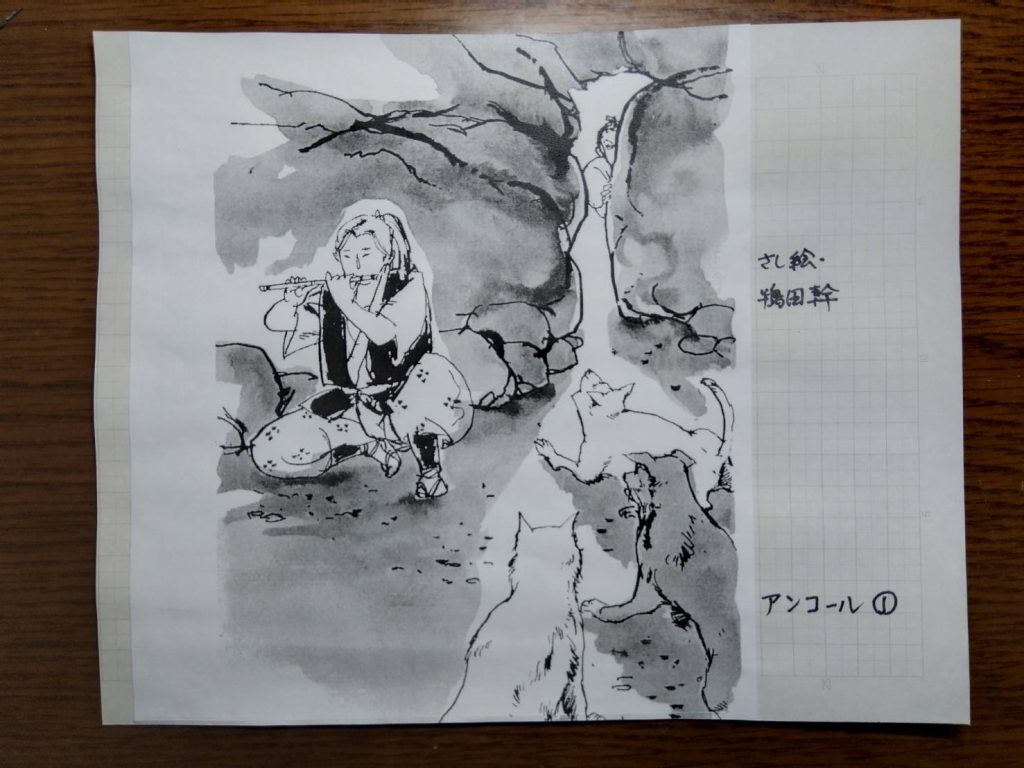 さし絵・
鴇田幹
アンコール ①